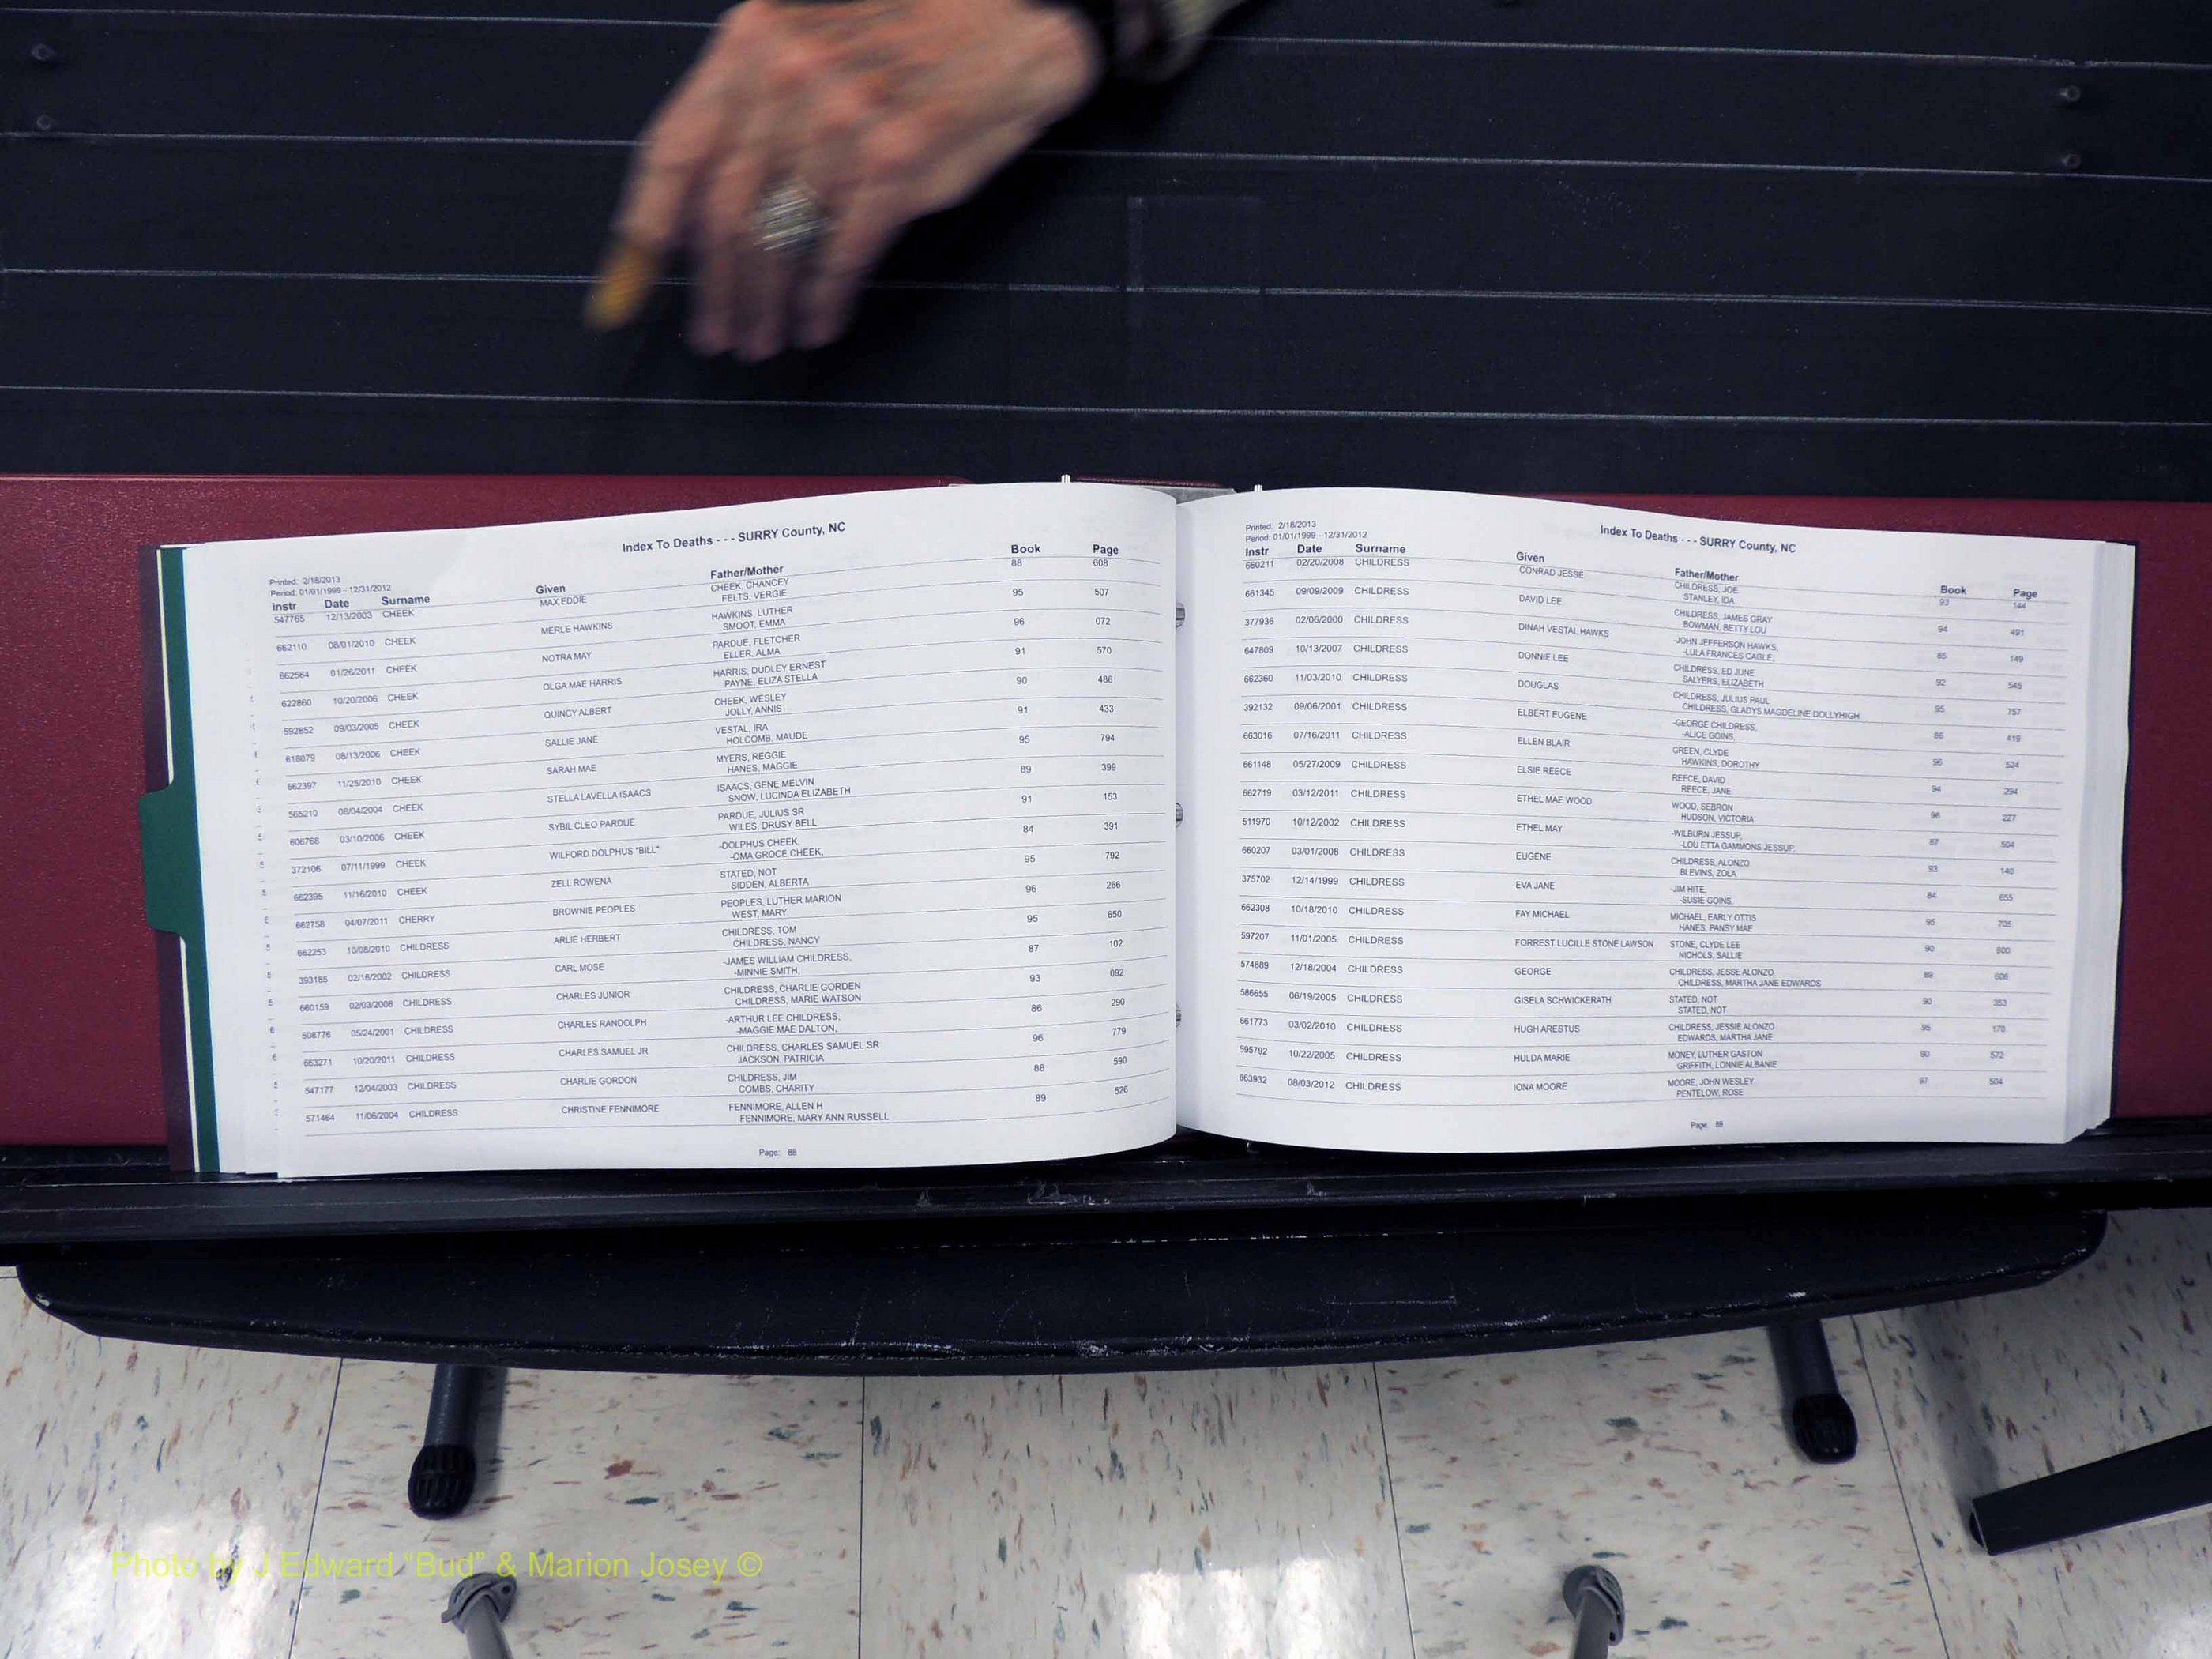 Index To Deaths - - - SURRY County, NC
Printed: 2/18/2013
Period: 01/01/1999 - 12/31/2012
Instr Date Surname Given Father/Mother Book Page
547765 12/13/2003 CHEEK MAX EDDIE CHEEK, CHANCEY 88 608
FELTS, VERGIE
662110 08/01/2010 CHEEK MERLE HAWKINS HAWKINS, LUTHER 95 507
SMOOT, EMMA
662564 01/26/2011 CHEEK NOTRA MAY PARDUE, FLETCHER 96 072
ELLER, ALMA
622860 10/20/2006 CHEEK OLGA MAE HARRIS HARRIS, DUDLEY ERNEST 91 570
PAYNE, ELIZA STELLA
592852 09/03/2005 CHEEK QUINCY ALBERT CHEEK, WESLEY 90 486
JOLLY, ANNIS
618079 08/13/2006 CHEEK SALLIE JANE VESTAL, IRA 91 433
HOLCOMB, MAUDE
662397 11/25/2010 CHEEK SARAH MAE MYERS, REGGIE 95 794
HANES, MAGGIE
565210 08/04/2004 CHEEK STELLA LAVELLA ISAACS ISAACS, GENE MELVIN 89 399
SNOW, LUCINDA ELIZABETH
606768 03/10/2006 CHEEK SYBIL CLEO PARDUE PARDUE, JULIUS SR 91 153
WILES, DRUSY BELL
372106 07/11/1999 CHEEK WILFORD DOLPHUS "BILL" -DOLPHUS CHEEK, 84 391
-OMA GROCE CHEEK,
662395 11/16/2010 CHEEK ZELL ROWENA STATED, NOT 95 792
SIDDEN, ALBERTA
662758 04/07/2011 CHERRY BROWNIE PEOPLES PEOPLES, LUTHER MARION 96 266
WEST, MARY
662253 10/08/2010 CHILDRESS ARLIE HERBERT CHILDRESS, TOM 95 650
CHILDRESS, NANCY
393185 02/16/2002 CHILDRESS CARL MOSE -JAMES WILLIAM CHILDRESS, 87 102
-MINNIE SMITH,
660159 02/03/2008 CHILDRESS CHARLES JUNIOR CHILDRESS, CHARLIE GORDEN 93 092
CHILDRESS, MARIE WATSON
508776 05/24/2001 CHILDRESS CHARLES RANDOLPH -ARTHUR LEE CHILDRESS, 86 290
-MAGGIE MAE DALTON,
663271 10/20/2011 CHILDRESS CHARLES SAMUEL JR CHILDRESS, CHARLES SAMUEL SR 96 779
JACKSON, PATRICIA
547177 12/04/2003 CHILDRESS CHARLIE GORDON CHILDRESS, JIM 88 590
COMBS, CHARITY
571464 11/06/2004 CHILDRESS CHRISTINE FENNIMORE FENNIMORE, ALLEN H 89 526
FENNIMORE, MARY ANN RUSSELL
Page: 88
Index To Deaths - - - SURRY County, NC
Printed: 2/18/2013
Period: 01/01/1999 - 12/31/2012
Instr Date Surname Given Father/Mother Book Page
660211 02/20/2008 CHILDRESS CONRAD JESSE CHILDRESS, JOE 93 144
STANLEY, IDA
661345 09/09/2009 CHILDRESS DAVID LEE CHILDRESS, JAMES GRAY 94 491
BOWMAN, BETTY LOU
377936 02/06/2000 CHILDRESS DINAH VESTAL HAWKS -JOHN JEFFERSON HAWKS, 85 149
-LULA FRANCES CAGLE,
647809 10/13/2007 CHILDRESS DONNIE LEE CHILDRESS, ED JUNE 92 545
SALYERS, ELIZABETH
662360 11/03/2010 CHILDRESS DOUGLAS CHILDRESS, JULIUS PAUL 95 757
CHILDRESS, GLADYS MAGDELINE DOLLYHIGH
392132 09/06/2001 CHILDRESS ELBERT EUGENE -GEORGE CHILDRESS, 86 419
-ALICE GOINS,
663016 07/16/2011 CHILDRESS ELLEN BLAIR GREEN, CLYDE 96 524
HAWKINS, DOROTHY
661148 05/27/2009 CHILDRESS ELSIE REECE REECE, DAVID 94 294
REECE, JANE
662719 03/12/2011 CHILDRESS ETHEL MAE WOOD WOOD, SEBRON 96 227
HUDSON, VICTORIA
511970 10/12/2002 CHILDRESS ETHEL MAY -WILBURN JESSUP, 87 504
-LOU ETTA GAMMONS JESSUP,
660207 03/01/2008 CHILDRESS EUGENE CHILDRESS, ALONZO 93 140
BLEVINS, ZOLA
375702 12/14/1999 CHILDRESS EVA JANE -JIM HITE, 84 655
-SUSIE GOINS,
662308 10/18/2010 CHILDRESS FAY MICHAEL MICHAEL, EARLY OTTIS 95 705
HANES, PANSY MAE
597207 11/01/2005 CHILDRESS FORREST LUCILLE STONE LAWSON STONE, CLYDE LEE 90 600
NICHOLS, SALLIE
574889 12/18/2004 CHILDRESS GEORGE CHILDRESS, JESSE ALONZO 89 606
CHILDRESS, MARTHA JANE EDWARDS
586655 06/19/2005 CHILDRESS GISELA SCHWICKERATH STATED, NOT 90 353
STATED, NOT
661773 03/02/2010 CHILDRESS HUGH ARESTUS CHILDRESS, JESSIE ALONZO 95 170
EDWARDS, MARTHA JANE
595792 10/22/2005 CHILDRESS HULDA MARIE MONEY, LUTHER GASTON 90 572
GRIFFITH, LONNIE ALBANIE
663932 08/03/2012 CHILDRESS IONA MOORE MOORE, JOHN WESLEY 97 504
PENTELOW, ROSE
Page: 89
Photo by J Edward "Bud" & Marion Josey ©